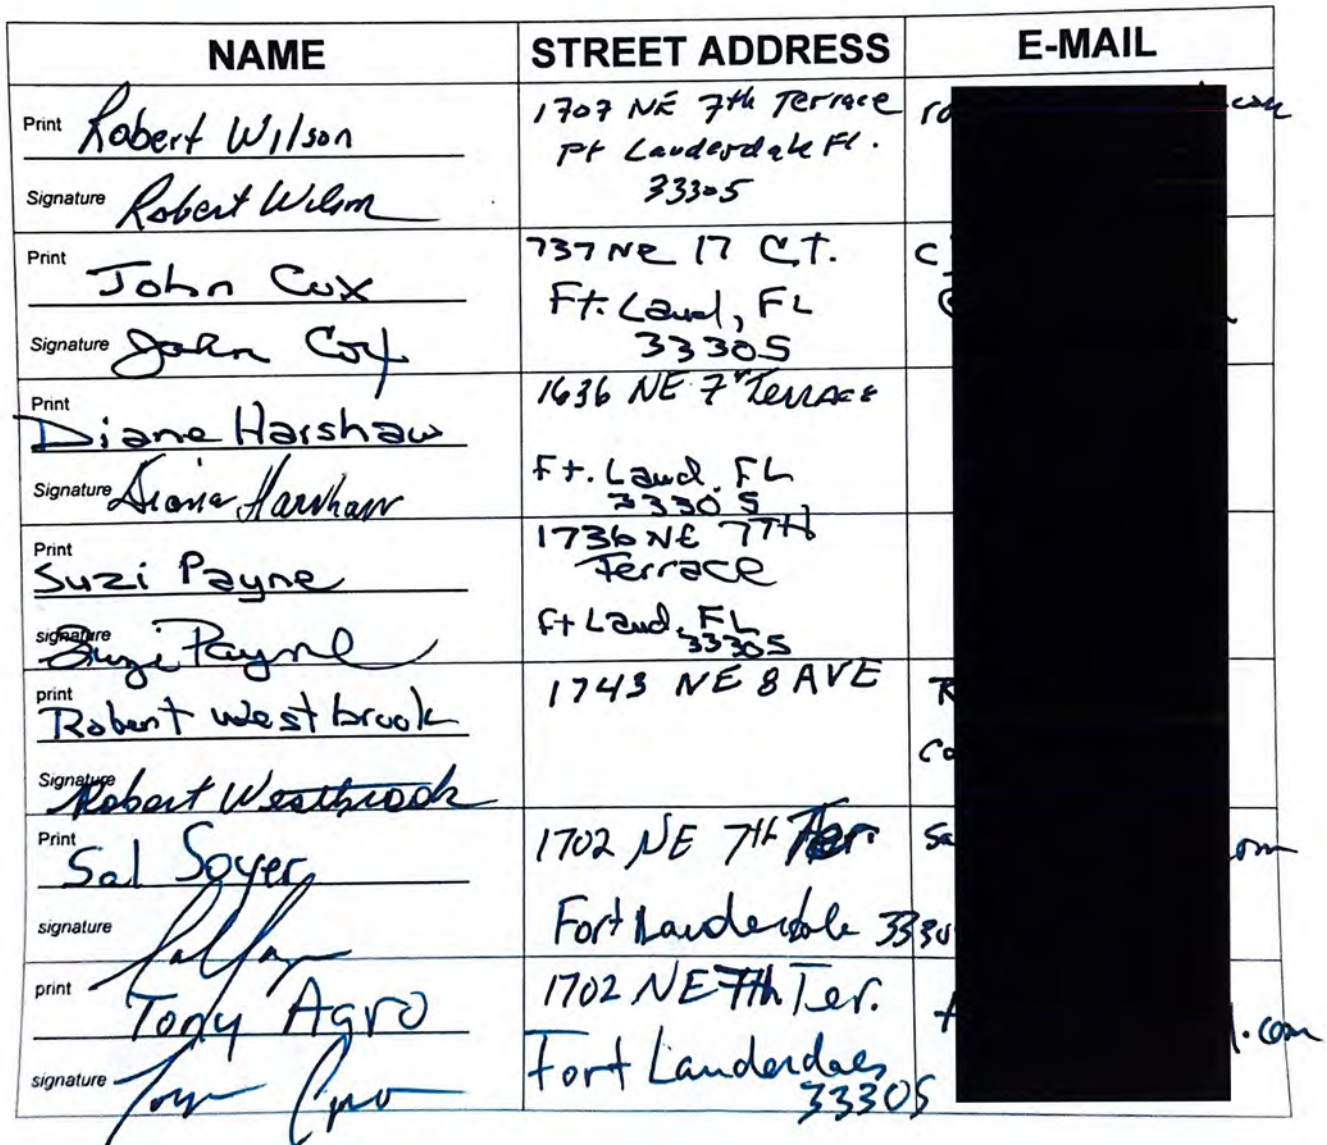 NAME STREET ADDRESS E-MAIL
Print Robert Wilson
Signature Robert Wilson
1707 NE 7th Terrace
Ft Lauderdale Fl.
33305
ro
com
Print John Cox
Signature John Cox
737 NE 17 CT.
Ft. Laud, FL
33305
c
Print Diane Harshaw
Signature Diane Harshaw
1636 NE 7th Terrace
Ft. Laud. FL
33305
Print Suzi Payne
signature Suzi Payne
1736 NE 7TH
Terrace
Ft Laud, FL
33305
print Robert Westbrook
Signature Robert Westbrook
1743 NE 8 AVE
R
co
Print Sal Soyer
signature
1702 NE 7th Ter.
Fort Lauderdale 3330
sa
om
print Tony Agro
signature Tony Agro
1702 NE 7th Ter.
Fort Lauderdaes
33305
l.com